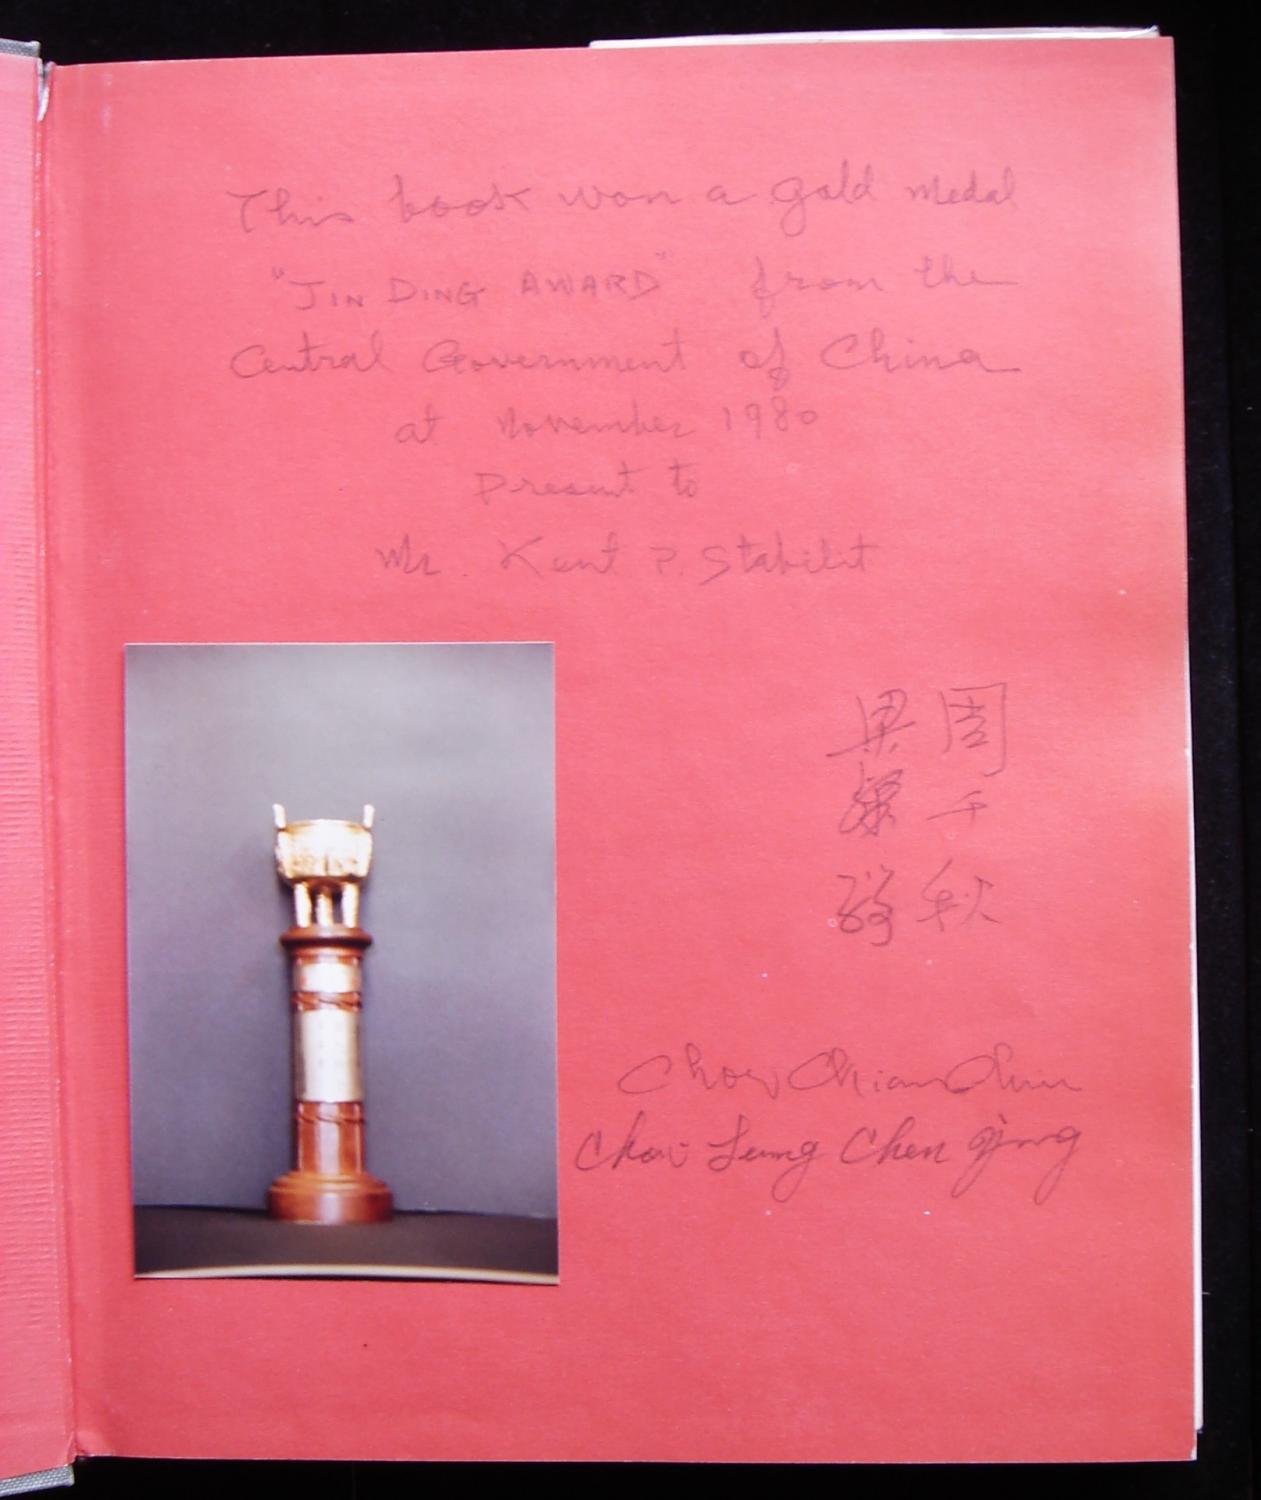 This book won a gold medal
"JIN DING AWARD" from the
Central Government of China
at November 1980
Present to
Mr. Kent P. Stabilit
周千秋
梁粲纓
Chow Chian Chiu
Chow Leung Chen Ying